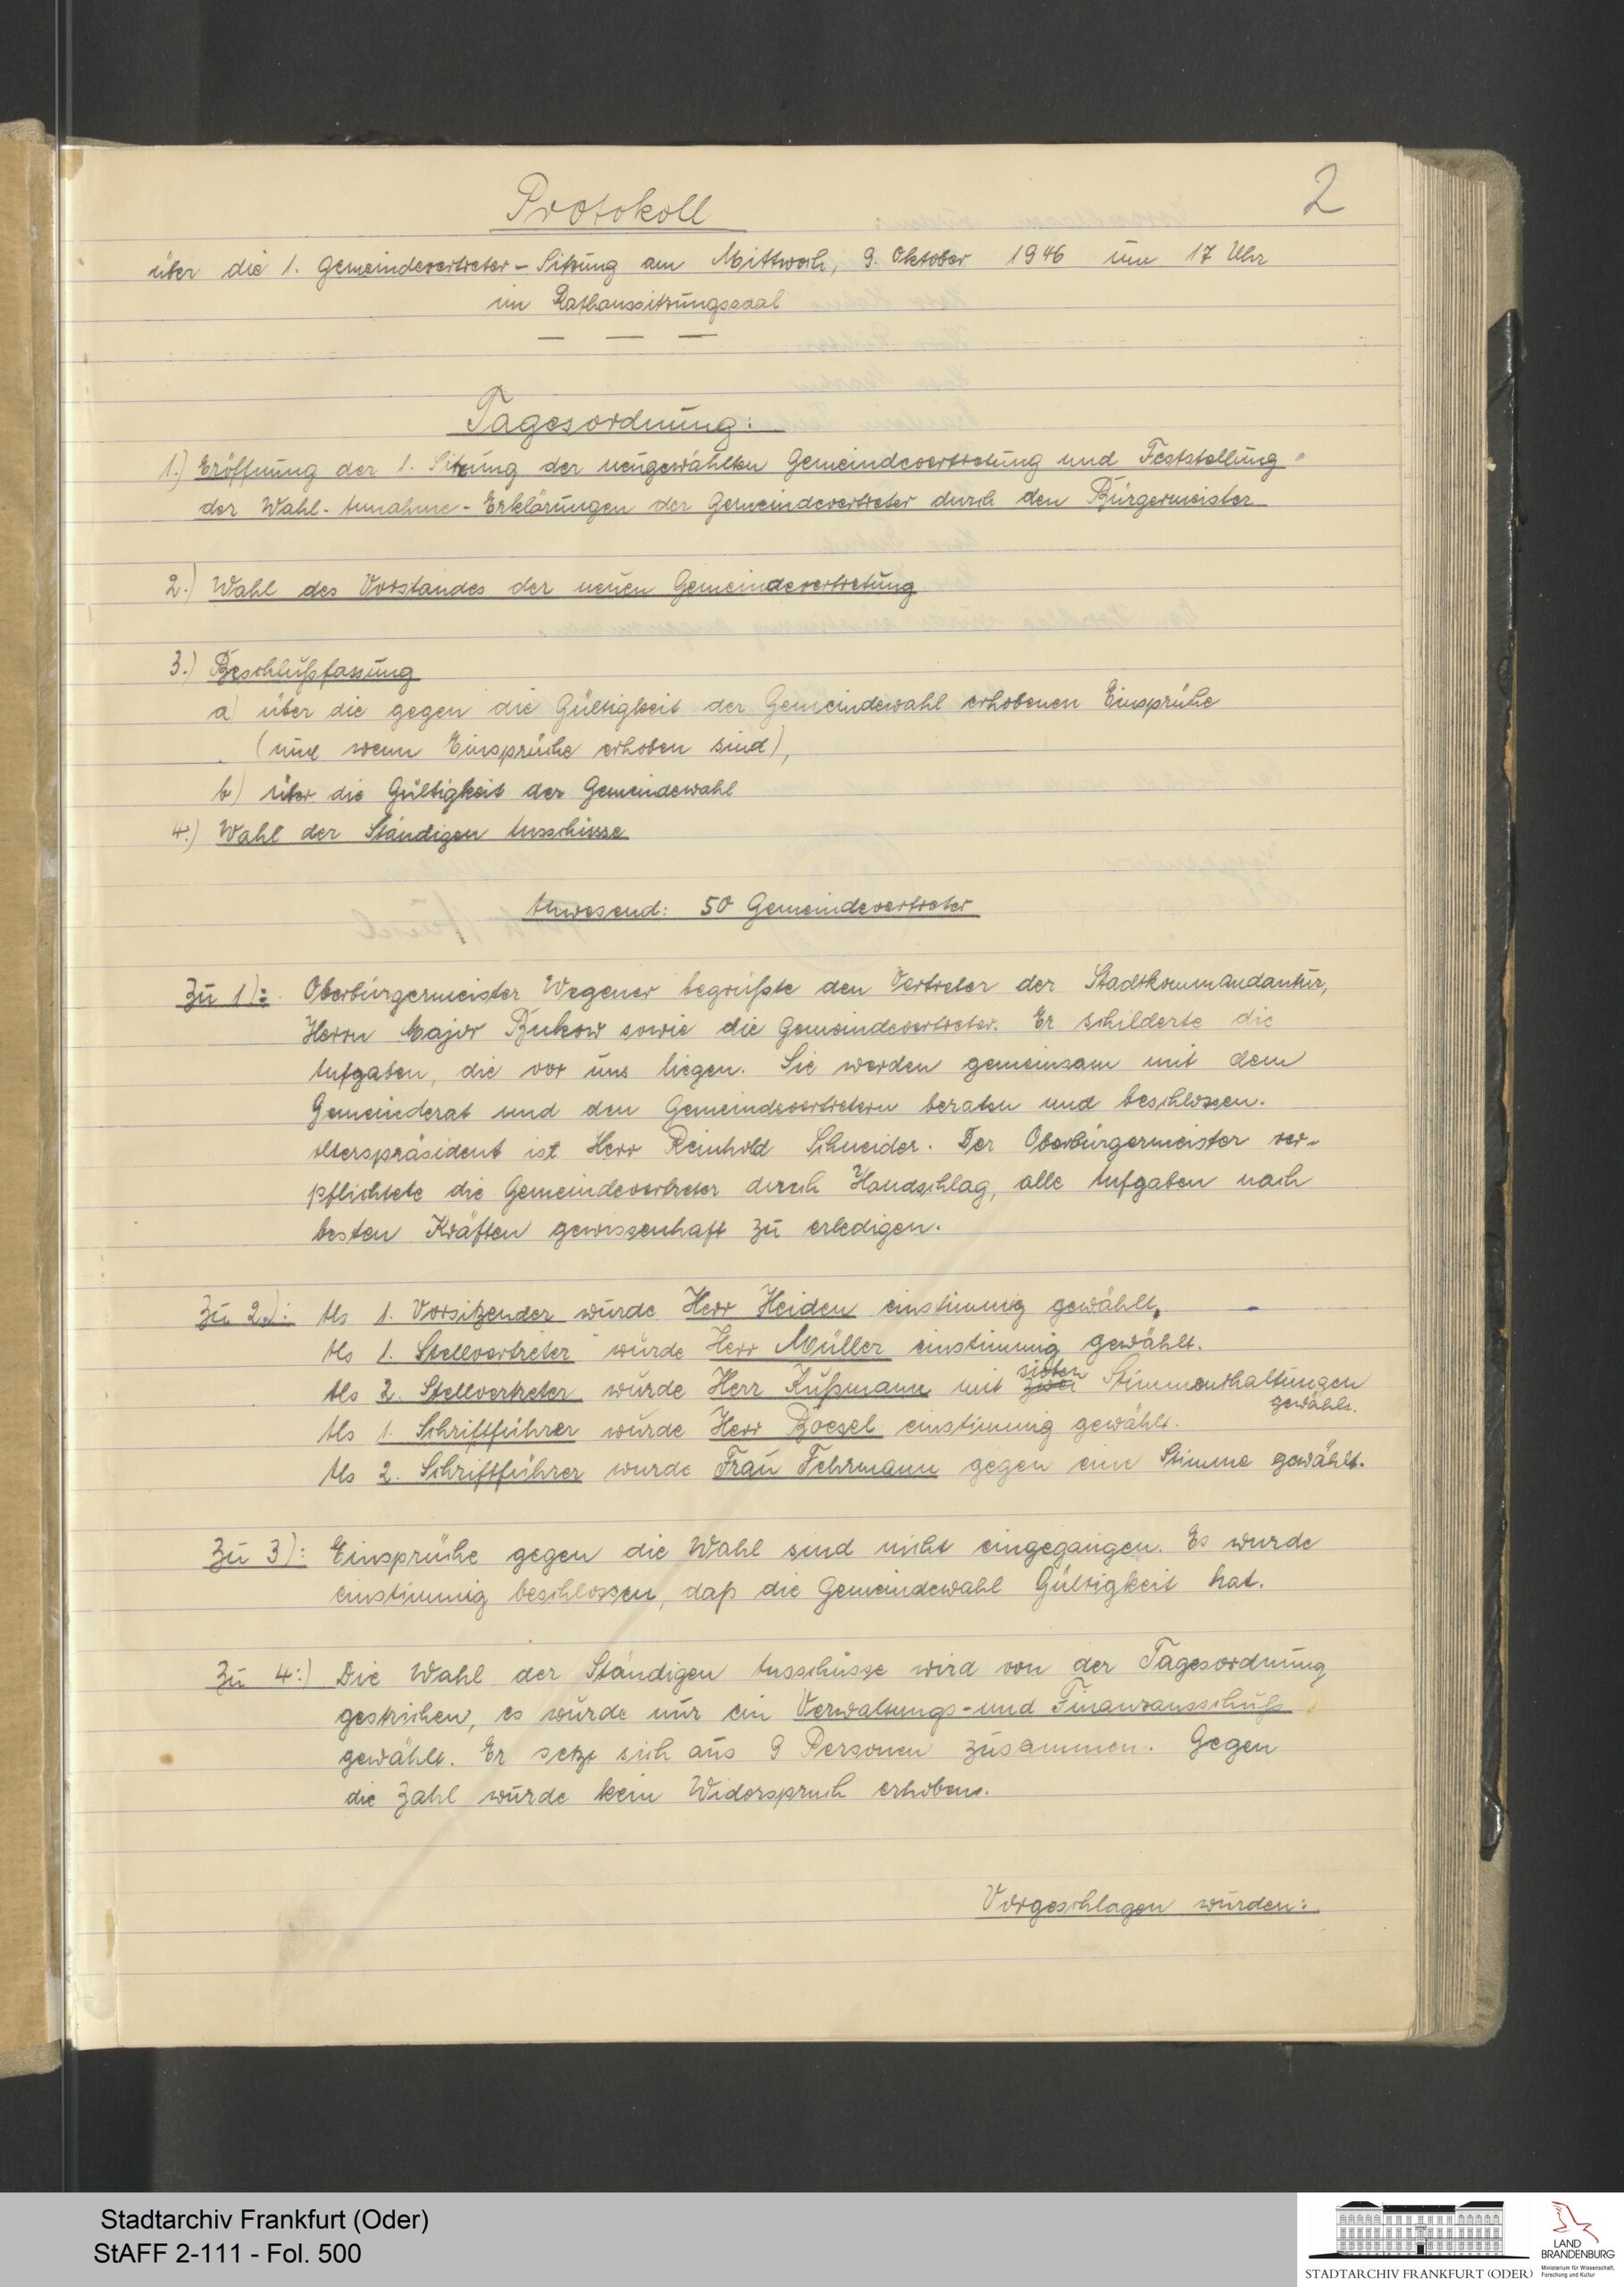 2
Protokoll
über die 1. Gemeindevertreter-Sitzung am Mittwoch, 9. Oktober 1946 um 17 Uhr
im Rathaussitzungssaal
Tagesordnung:
1.) Eröffnung der 1. Sitzung der neugewählten Gemeindevertretung und Feststellung
der Wahl-Annahme-Erklärungen der Gemeindevertreter durch den Bürgermeister
2.) Wahl des Vorstandes der neuen Gemeindevertretung
3.) Beschlußfassung
a) über die gegen die Gültigkeit der Gemeindewahl erhobenen Einsprüche
(nur wenn Einsprüche erhoben sind),
b) über die Gültigkeit der Gemeindewahl
4.) Wahl der Ständigen Ausschüsse
Anwesend: 50 Gemeindevertreter
Zu 1): Oberbürgermeister Wegener begrüßte den Vertreter der Stadtkommandantur,
Herrn Major Bukow sowie die Gemeindevertreter. Er schilderte die
Aufgaben, die vor uns liegen. Sie werden gemeinsam mit dem
Gemeinderat und den Gemeindevertretern beraten und beschlossen.
Alterspräsident ist Herr Reinhold Schneider. Der Oberbürgermeister ver-
pflichtete die Gemeindevertreter durch Handschlag, alle Aufgaben nach
besten Kräften gewissenhaft zu erledigen.
Zu 2.): Als 1. Vorsitzender wurde Herr Heiden einstimmig gewählt.
Als 1. Stellvertreter wurde Herr Müller einstimmig gewählt.
Als 2. Stellvertreter wurde Herr Kußmann mit zwei sieben Stimmenthaltungen
gewählt.
Als 1. Schriftführer wurde Herr Boesel einstimmig gewählt.
Als 2. Schriftführer wurde Frau Fehrmann gegen eine Stimme gewählt.
Zu 3): Einsprüche gegen die Wahl sind nicht eingegangen. Es wurde
einstimmig beschlossen, daß die Gemeindewahl Gültigkeit hat.
Zu 4:) Die Wahl der Ständigen Ausschüsse wird von der Tagesordnung
gestrichen, es wurde nur ein Verwaltungs- und Finanzausschuß
gewählt. Er setzt sich aus 9 Personen zusammen. Gegen
die Zahl wurde kein Widerspruch erhoben.
Vorgeschlagen wurden:
Stadtarchiv Frankfurt (Oder)
StAFF 2-111 - Fol. 500
STADTARCHIV FRANKFURT (ODER)
LAND
BRANDENBURG
Ministerium für Wissenschaft,
Forschung und Kultur